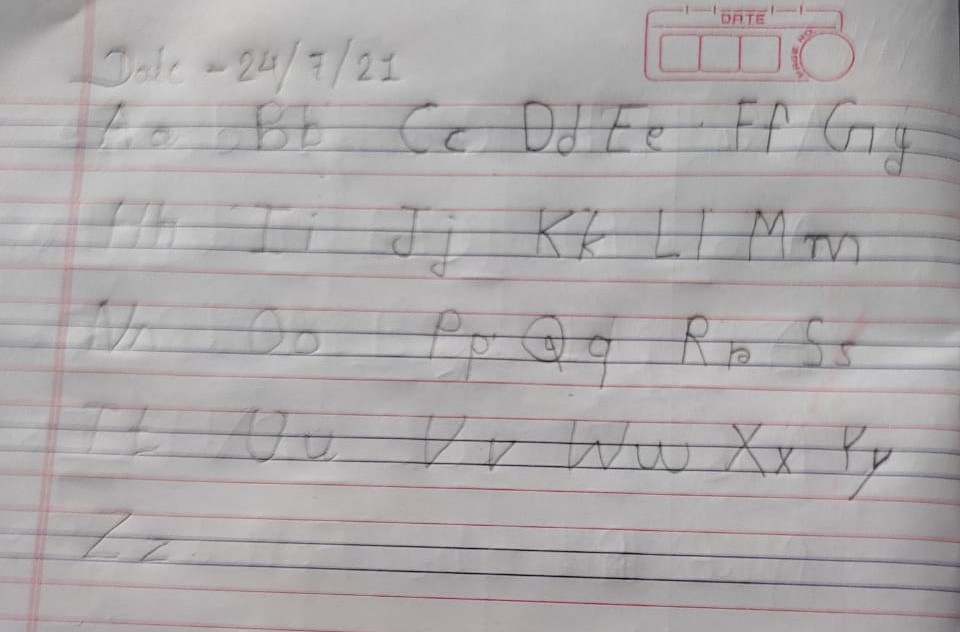 DATE
PAGE NO.
Date - 24/7/21
Aa Bb Cc Dd Ee Ff Gg
Hh Ii Jj Kk Ll Mm
Nn Oo Pp Qq Rr Ss
Tt Uu Vv Ww Xx Yy
Zz